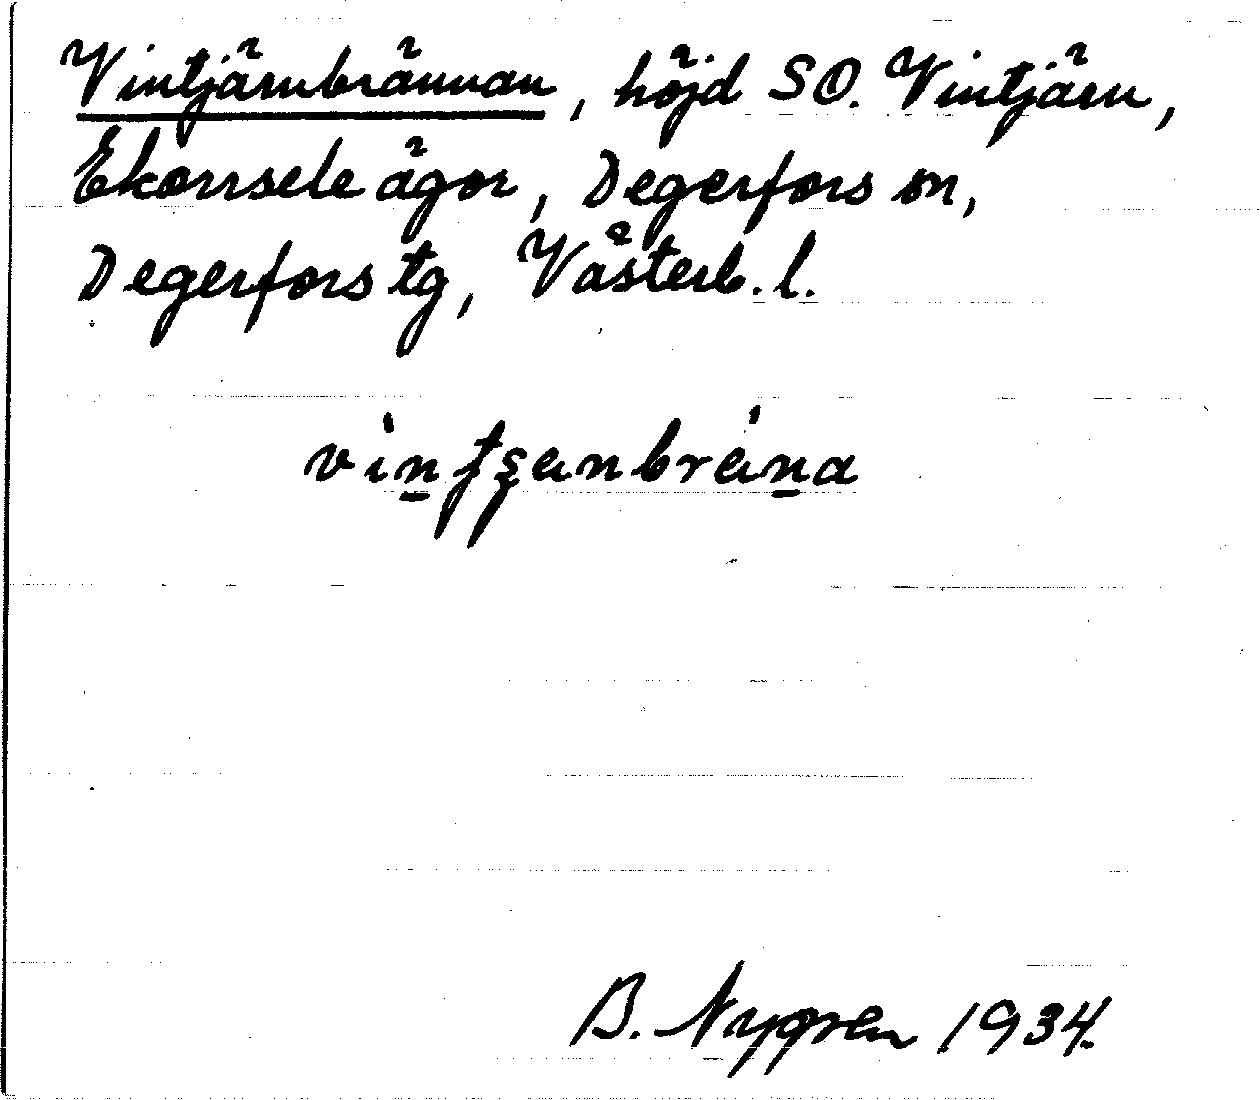 Vintjärnbrännan, höjd SO. Vintjärn,
Ekorrsele ägor, Degerfors sn,
Degerfors tg, Västerb. l.
B. Nygren 1934.